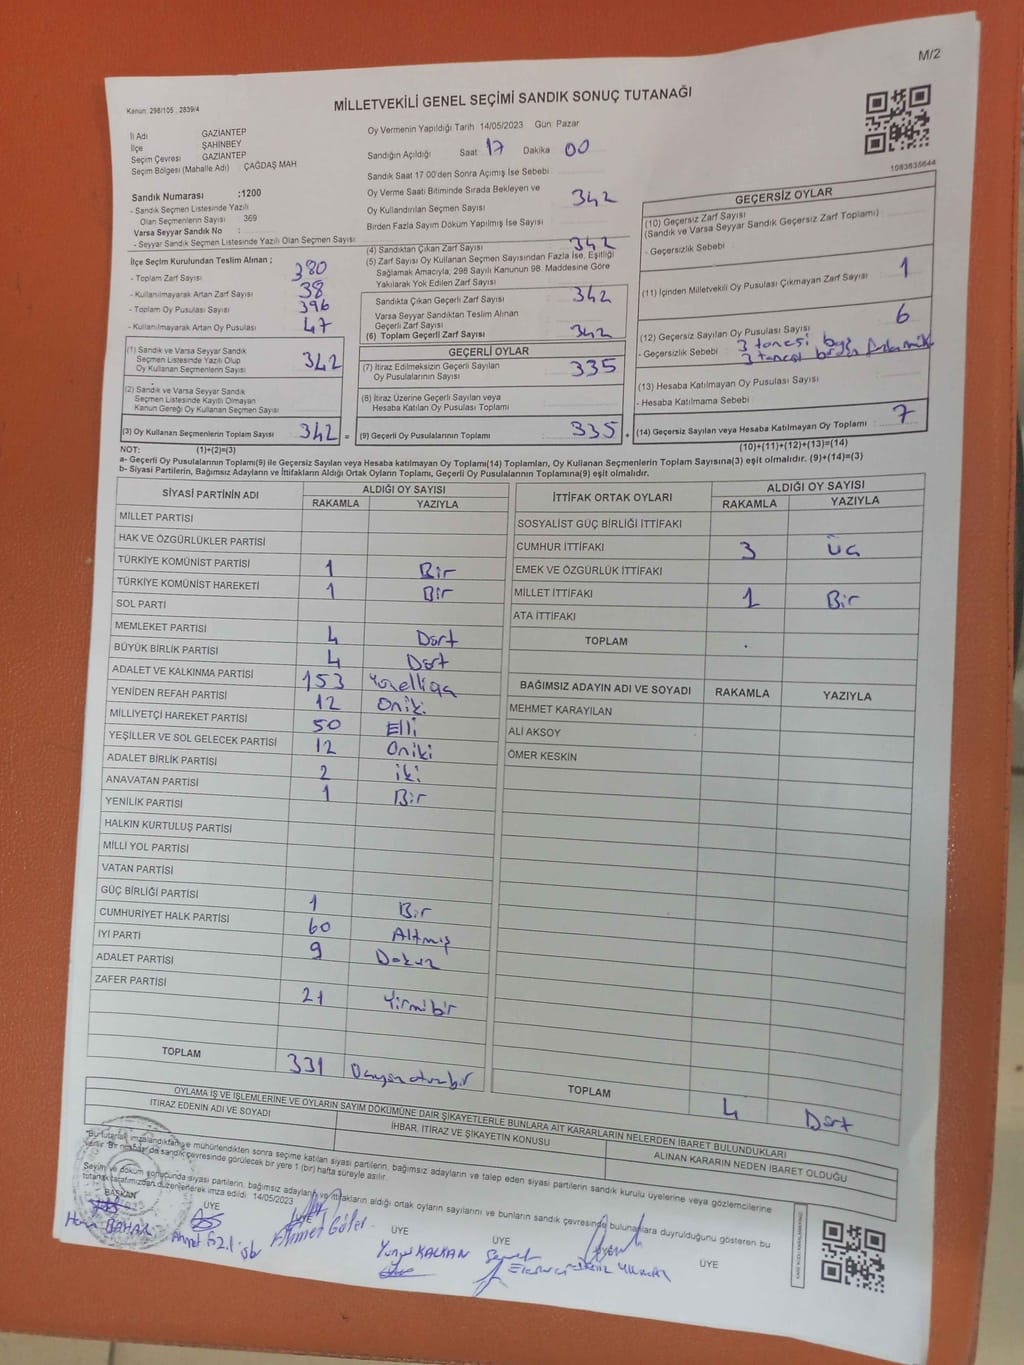 M/2
Kanun: 298/105 , 2839/4
MİLLETVEKİLİ GENEL SEÇİMİ SANDIK SONUÇ TUTANAĞI
1083835644
İl Adı GAZİANTEP
İlçe ŞAHİNBEY
Seçim Çevresi GAZİANTEP
Seçim Bölgesi (Mahalle Adı) ÇAĞDAŞ MAH
Sandık Numarası :1200
- Sandık Seçmen Listesinde Yazılı
Olan Seçmenlerin Sayısı 369
Varsa Seyyar Sandık No :
- Seyyar Sandık Seçmen Listesinde Yazılı Olan Seçmen Sayısı
İlçe Seçim Kurulundan Teslim Alınan ;
- Toplam Zarf Sayısı 380
- Kullanılmayarak Artan Zarf Sayısı 38
- Toplam Oy Pusulası Sayısı 396
- Kullanılmayarak Artan Oy Pusulası 47
(1) Sandık ve Varsa Seyyar Sandık
Seçmen Listesinde Yazılı Olup
Oy Kullanan Seçmenlerin Sayısı 342
(2) Sandık ve Varsa Seyyar Sandık
Seçmen Listesinde Kayıtlı Olmayan
Kanun Gereği Oy Kullanan Seçmen Sayısı
(3) Oy Kullanan Seçmenlerin Toplam Sayısı 342 =
Oy Vermenin Yapıldığı Tarih 14/05/2023 Gün Pazar
Sandığın Açıldığı Saat 17 Dakika 00
Sandık Saat 17 00'den Sonra Açımış İse Sebebi
Oy Verme Saati Bitiminde Sırada Bekleyen ve
Oy Kullandırılan Seçmen Sayısı 342
Birden Fazla Sayım Döküm Yapılmış İse Sayısı
(4) Sandıktan Çıkan Zarf Sayısı 342
(5) Zarf Sayısı Oy Kullanan Seçmen Sayısından Fazla İse, Eşitliği
Sağlamak Amacıyla, 298 Sayılı Kanunun 98. Maddesine Göre
Yakılarak Yok Edilen Zarf Sayısı
Sandıkta Çıkan Geçerli Zarf Sayısı 342
Varsa Seyyar Sandıktan Teslim Alınan
Geçerli Zarf Sayısı
(6) Toplam Geçerli Zarf Sayısı 342
GEÇERLİ OYLAR
(7) İtiraz Edilmeksizin Geçerli Sayılan
Oy Pusulalarının Sayısı 335
(8) İtiraz Üzerine Geçerli Sayılan veya
Hesaba Katılan Oy Pusulası Toplamı
(9) Geçerli Oy Pusulalarının Toplamı 335 +
GEÇERSİZ OYLAR
(10) Geçersiz Zarf Sayısı
(Sandık ve Varsa Seyyar Sandık Geçersiz Zarf Toplamı)
- Geçersizlik Sebebi
(11) İçinden Milletvekili Oy Pusulası Çıkmayan Zarf Sayısı 1
(12) Geçersiz Sayılan Oy Pusulası Sayısı 6
- Geçersizlik Sebebi 3 tanesi boş
3 tanesi
(13) Hesaba Katılmayan Oy Pusulası Sayısı
- Hesaba Katılmama Sebebi
(14) Geçersiz Sayılan veya Hesaba Katılmayan Oy Toplamı 7
NOT: (1)+(2)=(3)
(10)+(11)+(12)+(13)=(14)
a- Geçerli Oy Pusulalarının Toplamı(9) ile Geçersiz Sayılan veya Hesaba katılmayan Oy Toplamı(14) Toplamları, Oy Kullanan Seçmenlerin Toplam Sayısına(3) eşit olmalıdır. (9)+(14)=(3)
b- Siyasi Partilerin, Bağımsız Adayların ve İttifakların Aldığı Ortak Oyların Toplamı, Geçerli Oy Pusulalarının Toplamına(9) eşit olmalıdır.
SİYASİ PARTİNİN ADI ALDIĞI OY SAYISI
RAKAMLA YAZIYLA
MİLLET PARTİSİ
HAK VE ÖZGÜRLÜKLER PARTİSİ
TÜRKİYE KOMÜNİST PARTİSİ 1 Bir
TÜRKİYE KOMÜNİST HAREKETİ 1 Bir
SOL PARTİ
MEMLEKET PARTİSİ 4 Dört
BÜYÜK BİRLİK PARTİSİ 4 Dört
ADALET VE KALKINMA PARTİSİ 153 Yüzelliüç
YENİDEN REFAH PARTİSİ 12 Oniki
MİLLİYETÇİ HAREKET PARTİSİ 50 Elli
YEŞİLLER VE SOL GELECEK PARTİSİ 12 Oniki
ADALET BİRLİK PARTİSİ 2 iki
ANAVATAN PARTİSİ 1 Bir
YENİLİK PARTİSİ
HALKIN KURTULUŞ PARTİSİ
MİLLİ YOL PARTİSİ
VATAN PARTİSİ
GÜÇ BİRLİĞİ PARTİSİ 1 Bir
CUMHURİYET HALK PARTİSİ 60 Altmış
İYİ PARTİ 9 Dokuz
ADALET PARTİSİ
ZAFER PARTİSİ 21 Yirmibir
TOPLAM 331
İTTİFAK ORTAK OYLARI ALDIĞI OY SAYISI
RAKAMLA YAZIYLA
SOSYALİST GÜÇ BİRLİĞİ İTTİFAKI
CUMHUR İTTİFAKI 3 Üç
EMEK VE ÖZGÜRLÜK İTTİFAKI
MİLLET İTTİFAKI 1 Bir
ATA İTTİFAKI
TOPLAM
BAĞIMSIZ ADAYIN ADI VE SOYADI RAKAMLA YAZIYLA
MEHMET KARAYILAN
ALİ AKSOY
ÖMER KESKİN
TOPLAM 4 Dört
OYLAMA İŞ VE İŞLEMLERİNE VE OYLARIN SAYIM DÖKÜMÜNE DAİR ŞİKAYETLERLE BUNLARA AİT KARARLARIN NELERDEN İBARET BULUNDUKLARI
İTİRAZ EDENİN ADI VE SOYADI
İHBAR, İTİRAZ VE ŞİKAYETİN KONUSU
ALINAN KARARIN NEDEN İBARET OLDUĞU
"Bu tutanak imzalandıktan ve mühürlendikten sonra seçime katılan siyasi partilerin, bağımsız adayların ve talep eden siyasi partilerin sandık kurulu üyelerine veya gözlemcilerine
verilir. Bir da sandık çevresinde görülecek bir yere 1 (bir) hafta süreyle asılır.
Seyim ve döküm sonucunda siyasi partilerin, bağımsız adayların ve ittifakların aldığı ortak oyların sayılarını ve bunların sandık çevresinde bulunanlara duyrulduğunu gösteren bu
tutanak tarafımızdan düzenlenerek imza edildi. 14/05/2023
BAŞKAN
ÜYE
ÜYE
ÜYE
ÜYE
ÜYE
ÜYE
Ahmet Güler
KALKAN